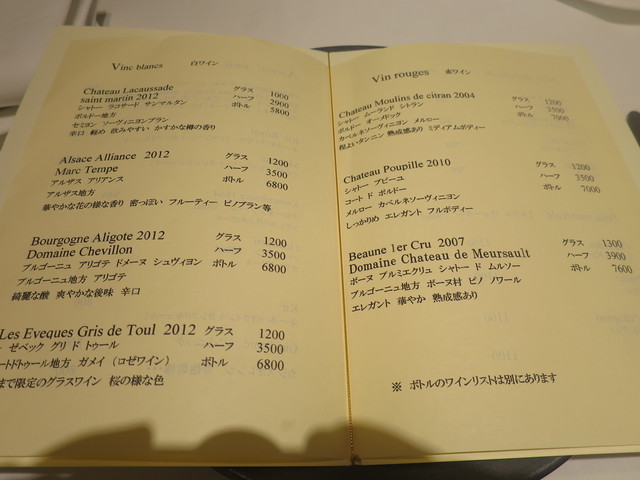 Vinc blancs 白ワイン
Chateau Lacaussade グラス 1000
saint martin 2012 ハーフ 2900
シャトー ラコサード サンマルタン ボトル 5800
ボルドー地方
セミヨン ソーヴィニヨンブラン
辛口 軽め 飲みやすい かすかな樽の香り
Alsace Alliance 2012 グラス 1200
Marc Tempe ハーフ 3500
アルザス アリアンス ボトル 6800
アルザス地方
華やかな花の様な香り 蜜っぽい フルーティー ピノブラン等
Bourgogne Aligote 2012 グラス 1200
Domaine Chevillon ハーフ 3500
ブルゴーニュ アリゴテ ドメーヌ シュヴィヨン ボトル 6800
ブルゴーニュ地方 アリゴテ
綺麗な酸 爽やかな後味 辛口
Les Eveques Gris de Toul 2012 グラス 1200
ゼベック グリ ド トゥール ハーフ 3500
ートドトゥール地方 ガメイ (ロゼワイン) ボトル 6800
まで限定のグラスワイン 桜の様な色
Vin rouges 赤ワイン
Chateau Moulins de citran 2004 グラス 1200
シャトー ムーランド シトラン ハーフ 3500
ボルドー オーメドック ボトル 7000
カベルネソーヴィニヨン メルロー
程よいタンニン 熟成感あり ミディアムボディー
Chateau Poupille 2010 グラス 1200
シャトー プピーユ ハーフ 3500
コート ド ボルドー ボトル 7000
メルロー カベルネソーヴィニヨン
しっかりめ エレガント フルボディー
Beaune 1er Cru 2007 グラス 1300
Domaine Chateau de Meursault ハーフ 3900
ボーヌ プルミエクリュ シャトー ド ムルソー ボトル 7600
ブルゴーニュ地方 ボーヌ村 ピノ ノワール
エレガント 華やか 熟成感あり
※ ボトルのワインリストは別にあります